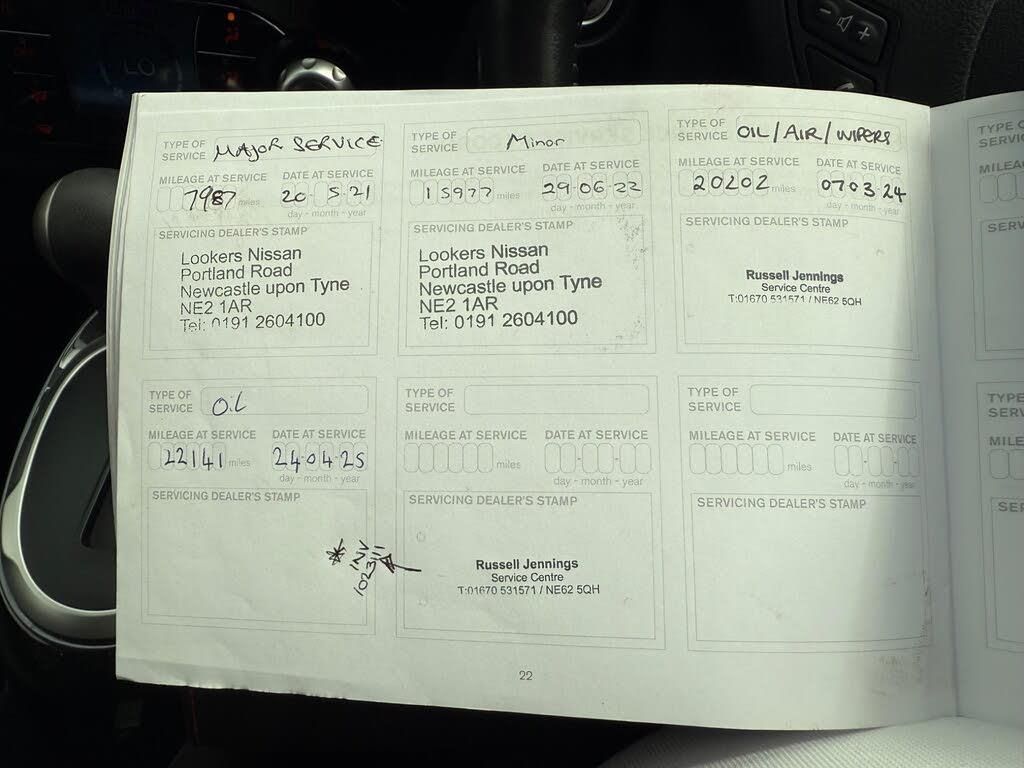 LO
TYPE OF
SERVICE MAJOR SERVICE
MILEAGE AT SERVICE DATE AT SERVICE
7987 miles 20 - 5 - 21
day - month - year
SERVICING DEALER'S STAMP
Lookers Nissan
Portland Road
Newcastle upon Tyne
NE2 1AR
Tel: 0191 2604100
TYPE OF
SERVICE Minor
MILEAGE AT SERVICE DATE AT SERVICE
15977 miles 29-06-22
day - month - year
SERVICING DEALER'S STAMP
Lookers Nissan
Portland Road
Newcastle upon Tyne
NE2 1AR
Tel: 0191 2604100
TYPE OF
SERVICE OIL/AIR/WIPERS
MILEAGE AT SERVICE DATE AT SERVICE
20202 miles 07-03-24
day - month - year
SERVICING DEALER'S STAMP
Russell Jennings
Service Centre
T:01670 531571 / NE62 5QH
TYPE OF
SERVICE OIL
MILEAGE AT SERVICE DATE AT SERVICE
22141 miles 24-04-25
day - month - year
SERVICING DEALER'S STAMP
INV
1023111
TYPE OF
SERVICE
MILEAGE AT SERVICE DATE AT SERVICE
miles
day - month - year
SERVICING DEALER'S STAMP
Russell Jennings
Service Centre
T:01670 531571 / NE62 5QH
TYPE OF
SERVICE
MILEAGE AT SERVICE DATE AT SERVICE
miles
day - month - year
SERVICING DEALER'S STAMP
22
TYPE O
SERVIC
MILEAG
SERV
TYPE
SERV
MILE
SE